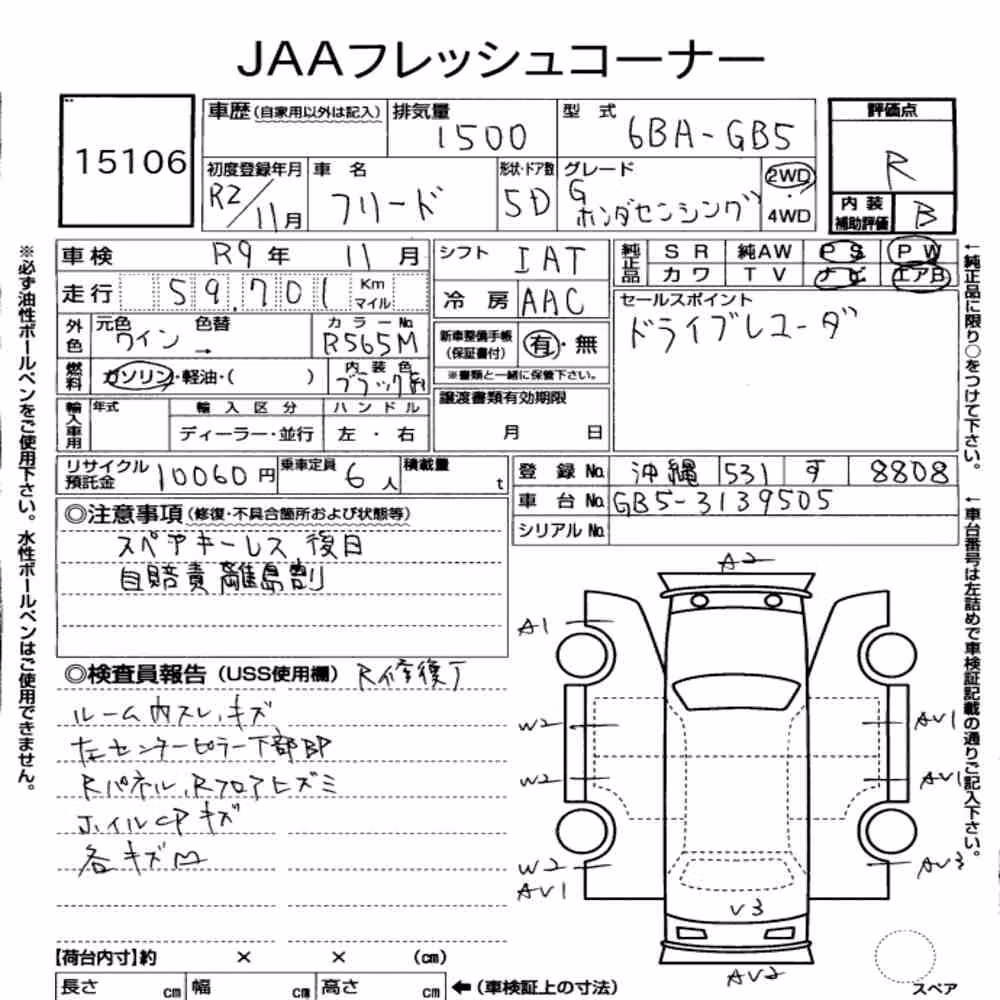 JAAフレッシュコーナー
15106
車歴(自家用以外は記入) 排気量 1500 型式 6BA-GB5
評価点 R
初度登録年月 R2/11月 車名 フリード 形状・ドア数 5D グレード G ホンダセンシング 2WD 4WD
内装補助評価 B
車検 R9年 11月 シフト IAT 純正品 SR 純AW PS PW
カワ TV ナビ エアB
走行 59,701 Km マイル 冷房 AAC
セールスポイント
ドライブレコーダ
外色 元色 ワイン 色替 → カラーNo. R565M
新車整備手帳(保証書付) 有・無
※書類と一緒に保管下さい。
燃料 ガソリン・軽油・( ) 内装色 ブラック
譲渡書類有効期限
月 日
輸入車用 年式 輸入区分 ハンドル
ディーラー・並行 左・右
リサイクル預託金 10060円 乗車定員 6人 積載量 t
登録No. 沖縄 531 す 8808
車台No. GB5-3139505
シリアルNo.
◎注意事項(修復・不具合箇所および状態等)
スペアキーレス 後日
自賠責 離島割
◎検査員報告(USS使用欄) R修復丁
ルーム内スレ、キズ
左センターピラー下部BP
Rパネル、Rフロアヒズミ
ホイルCPキズ
各キズ凹
A2
A1
W2
AV1
W2
AV1
W2
AV1
AV3
V3
AV2
スペア
【荷台内寸】約 × × (cm)
長さ cm 幅 cm 高さ cm ←(車検証上の寸法)
※必ず油性ボールペンをご使用下さい。水性ボールペンはご使用できません。
←純正品に限り○をつけて下さい。
←車台番号は左詰めで車検証記載の通りご記入下さい。